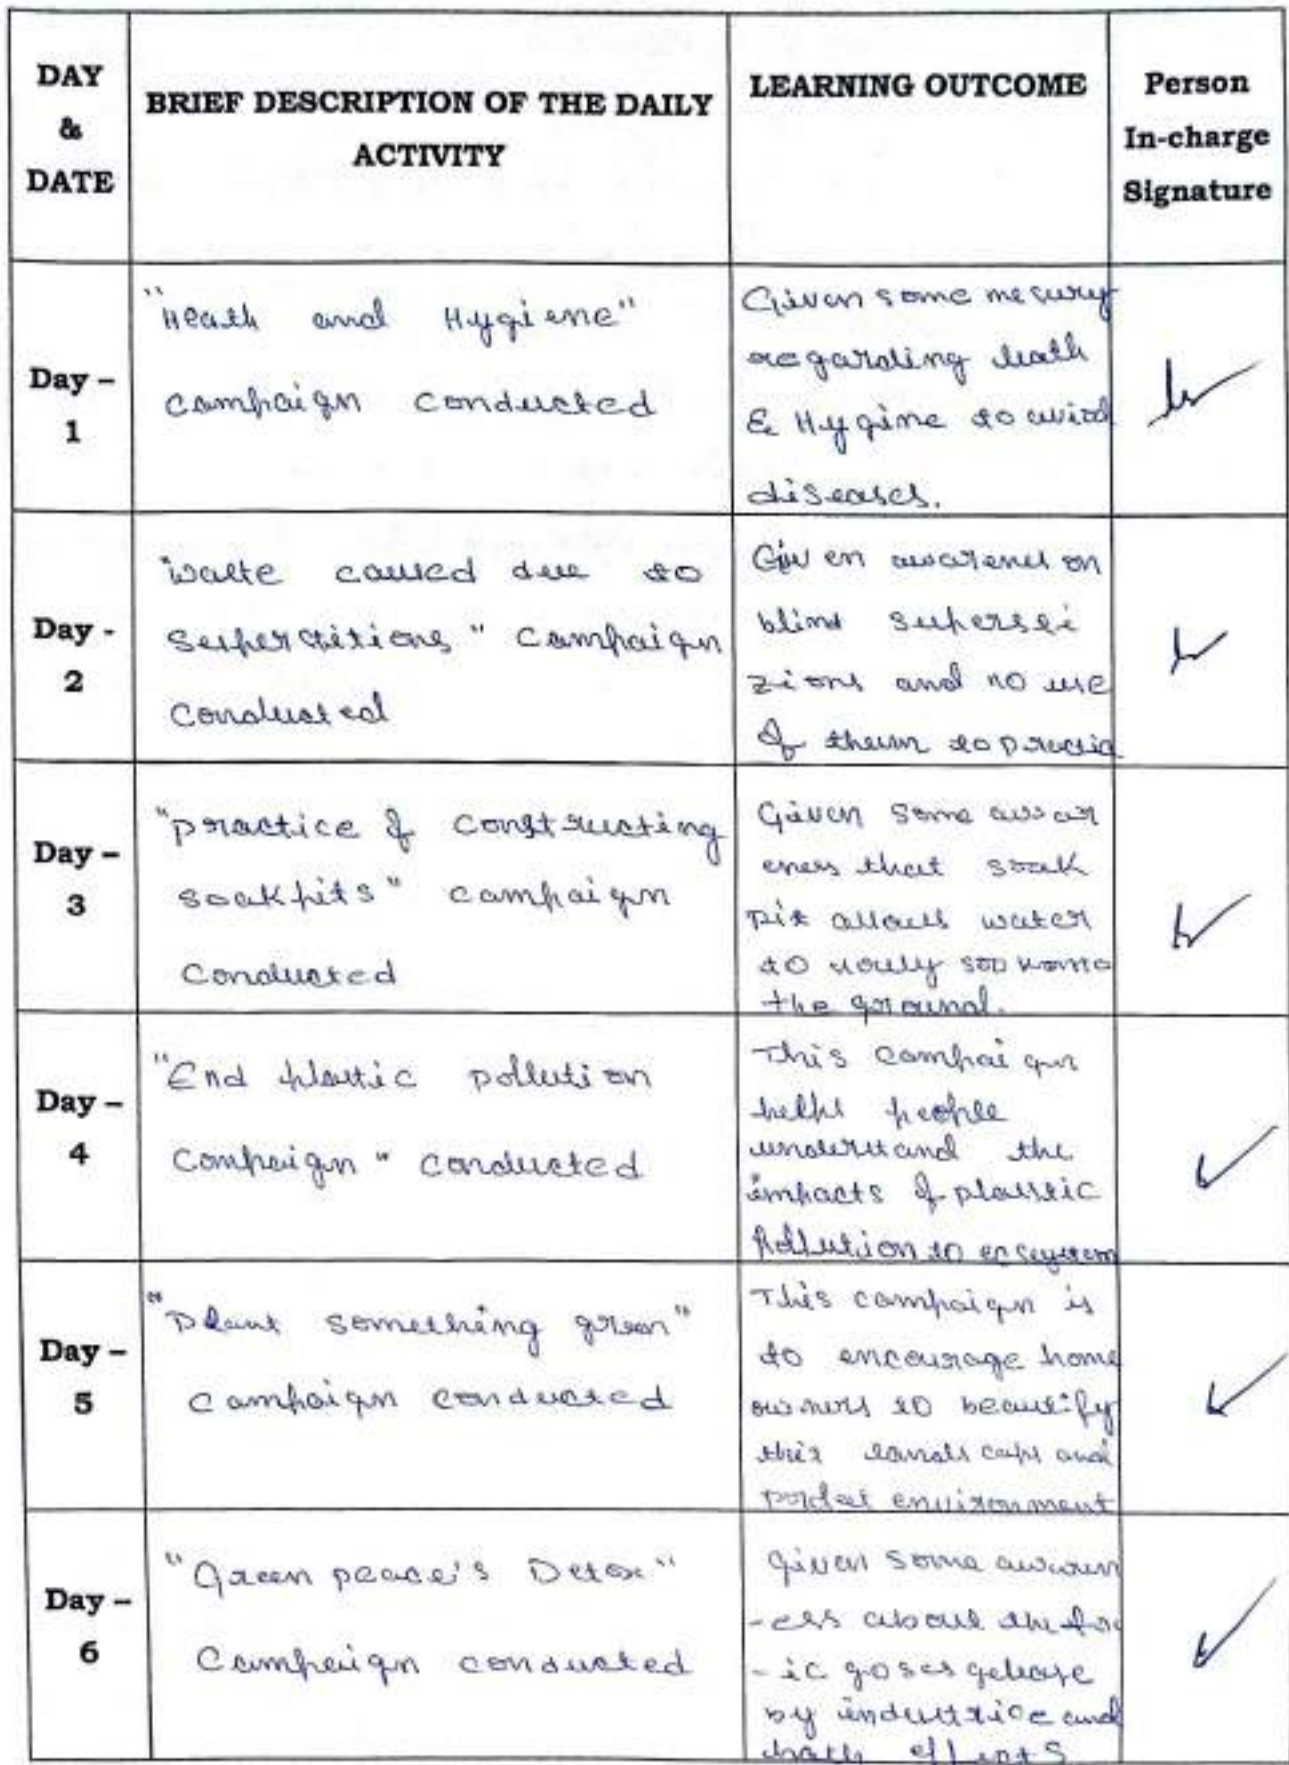 DAY & DATE
BRIEF DESCRIPTION OF THE DAILY ACTIVITY
LEARNING OUTCOME
Person In-charge Signature
Day – 1
"Heath and Hygiene"
campaign conducted
Given some mesury
regarding heath
& Hygine to aviod
diseases.
Day - 2
"waste caused due to
superstitions" campaign
Conducted
Given awarenes on
blind superssi
zions and no use
of them to practic
Day – 3
"practice of constructing
soakpits" campaign
Conducted
Given some awar
eness that soak
pit allows water
to
the ground.
Day – 4
"End plastic pollution
Compaign" conducted
This campaign
helps people
understand the
impacts of plasstic
pollution to ecsystem
Day – 5
"Plant something green"
campaign conducted
This campaign is
to encourage home
owners to beautify
their landscaps and
environment
Day – 6
"Green peace's Detox"
Campaign conducted
given some awaren
-ess about the tox
-ic gases
by industries and
heath effents